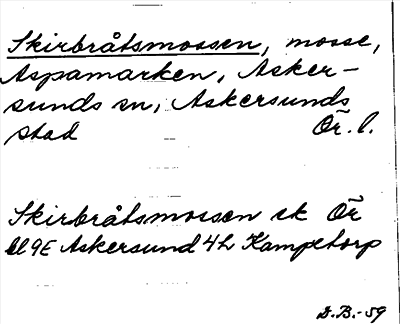 Skirbråtsmossen, mosse,
Aspamarken, Asker-
sunds sn, Askersunds
stad Ör. l.
Skirbråtsmossen ek Ör
bl 9E Askersund 4h Kampetorp
D.B.-59